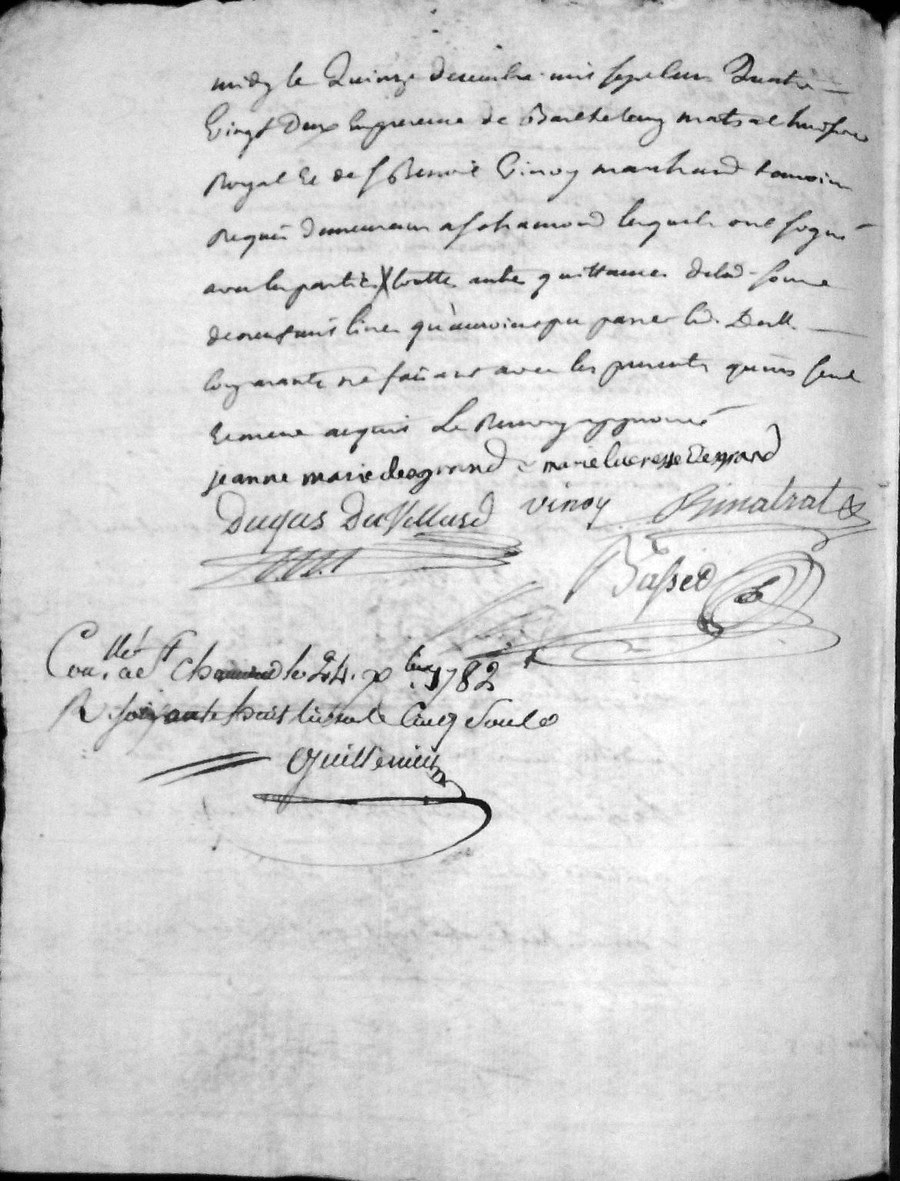 midy le Quinze decembre mil sept cent Quatre
Vingt Deux En presence de Barthelemy matrat huissier
Royal Et de s. Benoit Vinoy marchand temoins
Requis demeurant a st chamond lesquels ont signé
avec les parties X toutte autre quittance de lad. somme
de neuf cents livres qu'auroient pu passer lad. Delle
ne faisant avec les presentes qu'un seul
Et meme acquit Le Renvoy approuvé
jeanne marie desgrand marie lucresse Desgrand
Dugas Du Villard vinoy Bmatrat
Basset
Con.llé a st Chamond le 24. xbre 1782
R. soixante huit livres Cinq Sould
Guillemin